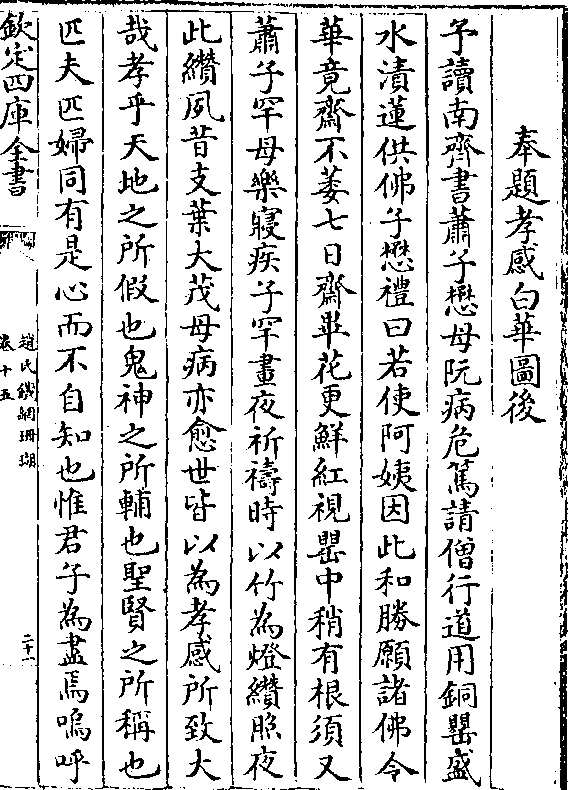 奉題孝感白華圖後
予讀南齊書蕭子懋母阮病危篤請僧行道用銅罌盛
水漬蓮供佛子懋禮曰若使阿姨因此和勝願諸佛令
華竟齋不萎七日齋畢花更鮮紅視罌中稍有根須又
蕭子罕母樂寢疾子罕晝夜祈禱時以竹為燈纘照夜
此纘夙昔支葉大茂母病亦愈世皆以為孝感所致大
哉孝乎天地之所假也鬼神之所輔也聖賢之所稱也
匹夫匹婦同有是心而不自知也惟君子為盡焉嗚呼
欽定四庫全書
趙氏鐵網珊瑚
卷十五
二十一